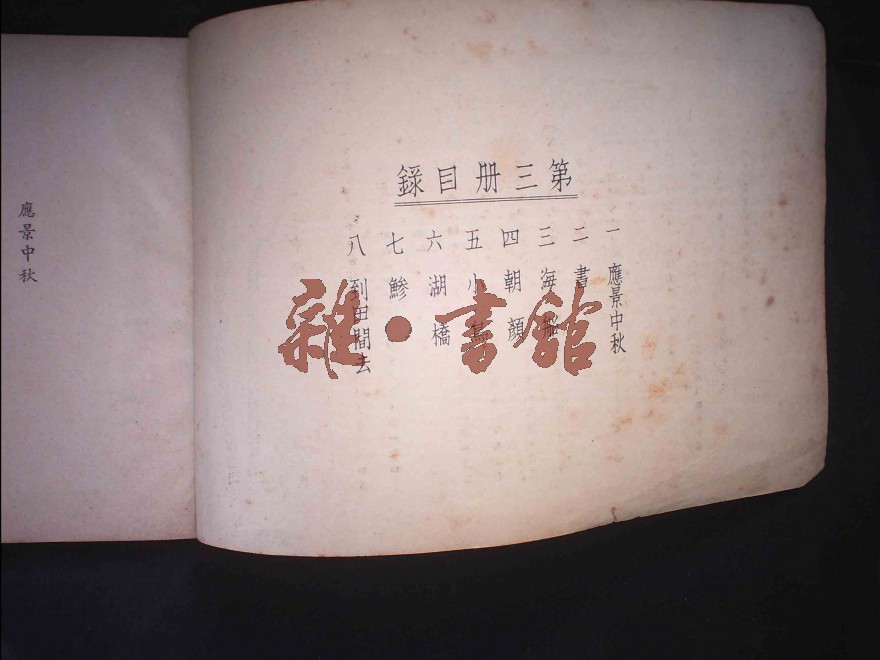 第三册目錄
一 應景中秋
二
三 海
四 朝顏
五 小
六 湖橋
七 鰺
八 到田間去
應景中秋
雜·書館